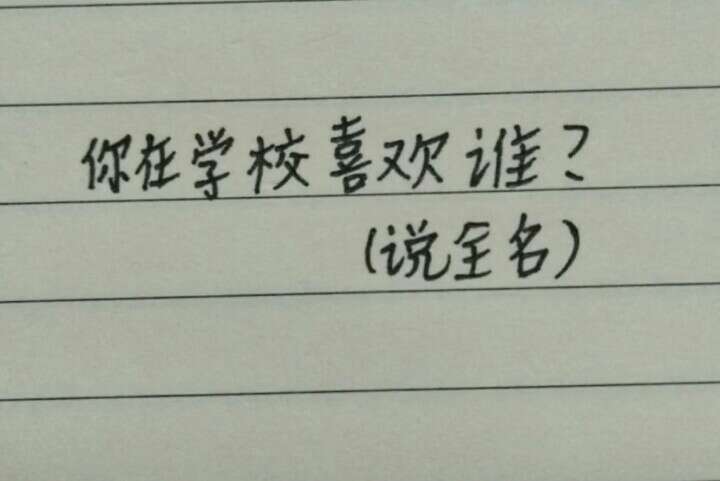 你在学校喜欢谁?
(说全名)